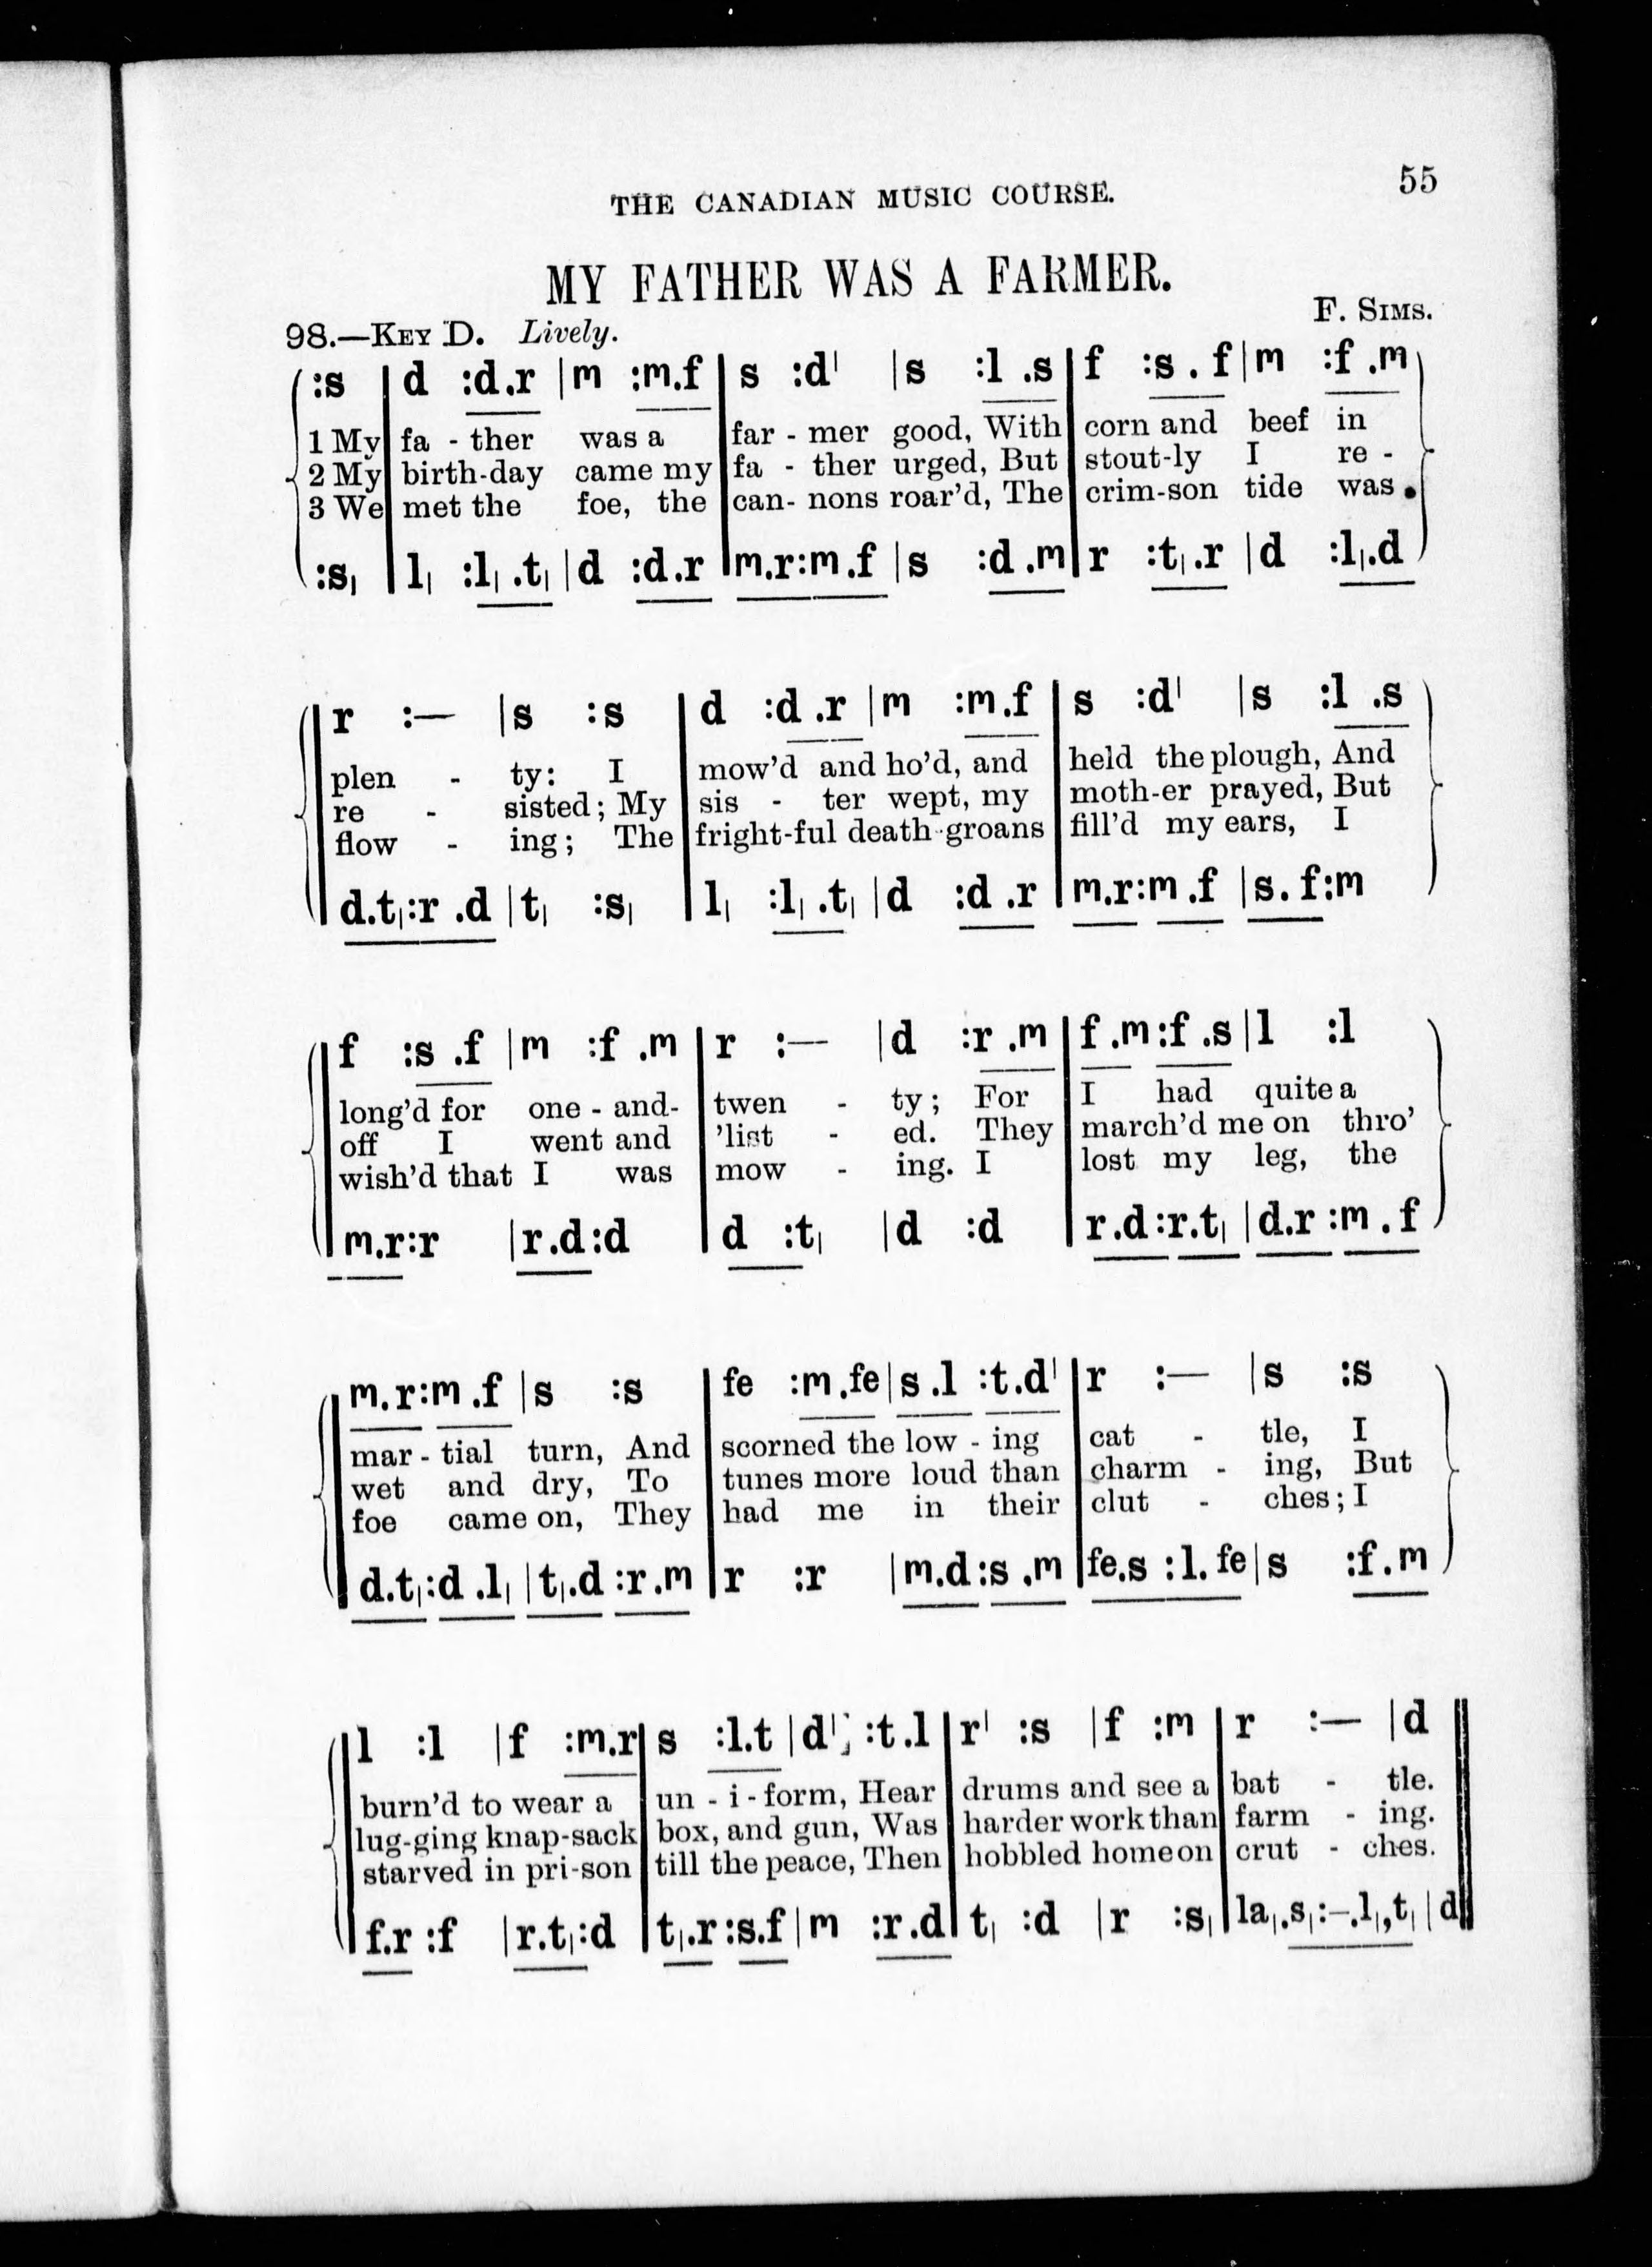 THE CANADIAN MUSIC COURSE. 55
MY FATHER WAS A FARMER.
F. SIMS.
98.—KEY D. Lively.
:s | d :d.r |m :m.f | s :d' |s :l .s | f :s . f |m :f .m
1 My fa - ther was a far - mer good, With corn and beef in
2 My birth-day came my fa - ther urged, But stout-ly I re -
3 We met the foe, the can- nons roar'd, The crim-son tide was
:s, | l, :l, .t, |d :d.r | m.r:m.f |s :d .m | r :t, .r |d :l,.d
r :— |s :s | d :d .r |m :m.f | s :d' |s :l .s
plen - ty: I mow'd and ho'd, and held the plough, And
re - sisted; My sis - ter wept, my moth-er prayed, But
flow - ing; The fright-ful death-groans fill'd my ears, I
d.t,:r .d |t, :s, | l, :l, .t, |d :d .r | m.r:m .f |s. f:m
f :s .f |m :f .m | r :— |d :r .m | f .m:f .s |l :l
long'd for one - and- twen - ty; For I had quite a
off I went and 'list - ed. They march'd me on thro'
wish'd that I was mow - ing. I lost my leg, the
m.r:r |r.d:d | d :t, |d :d | r.d:r.t, |d.r :m . f
m.r:m .f |s :s | fe :m.fe |s .l :t.d' | r :— |s :s
mar - tial turn, And scorned the low - ing cat - tle, I
wet and dry, To tunes more loud than charm - ing, But
foe came on, They had me in their clut - ches; I
d.t,:d .l, |t,.d :r .m | r :r |m.d:s .m | fe.s :l. fe |s :f .m
l :l |f :m.r | s :l.t |d' :t .l | r' :s |f :m | r :— |d
burn'd to wear a un - i - form, Hear drums and see a bat - tle.
lug-ging knap-sack box, and gun, Was harder work than farm - ing.
starved in pri-son till the peace, Then hobbled home on crut - ches.
f.r :f |r.t,:d | t,.r :s.f |m :r .d | t, :d |r :s, | la,.s,:–.l,,t, |d